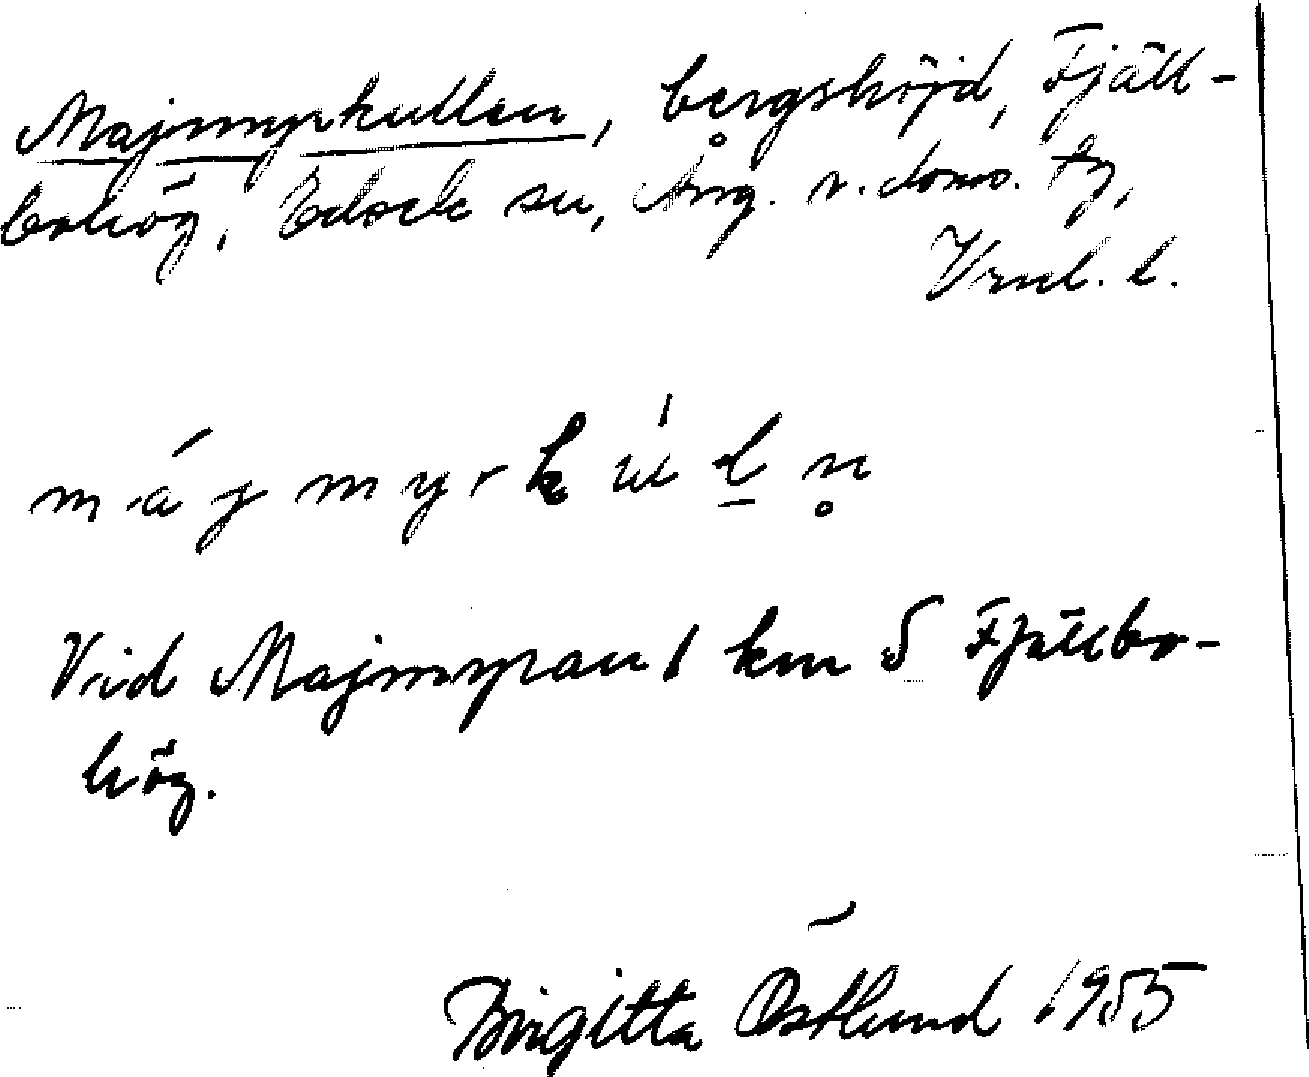 Majmyrkullen, bergshöjd, Fjäll-
bohög, Edsele sn, Ång. v. doms. tg,
Vrnl. l.
májmyrkúḻn̥
Vid Majmyran 1 km S Fjällbo-
hög.
Birgitta Östlund 1955